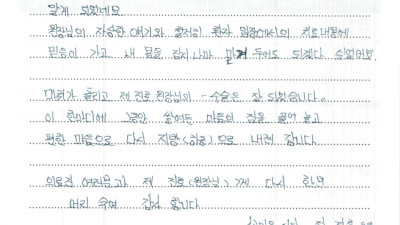 알게 되었네요
원장님의 자상한 얘기와 환자 입장에서의 치료내용에
믿음이 가고 내 몸을 잠시나마 맡겨 두어도 되겠다 싶었어요.
마취가 풀리고 제 진료 원장님의 - 수술은 잘 되었습니다..
이 한마디에 그동안 쌓여든 마음의 짐을 풀어 놓고
편한 마음으로 다시 지방(하동)으로 내려 갑니다.
의료진 여러분과 제 진료(원장님)께 다시 한번
머리 숙여 감사 합니다.